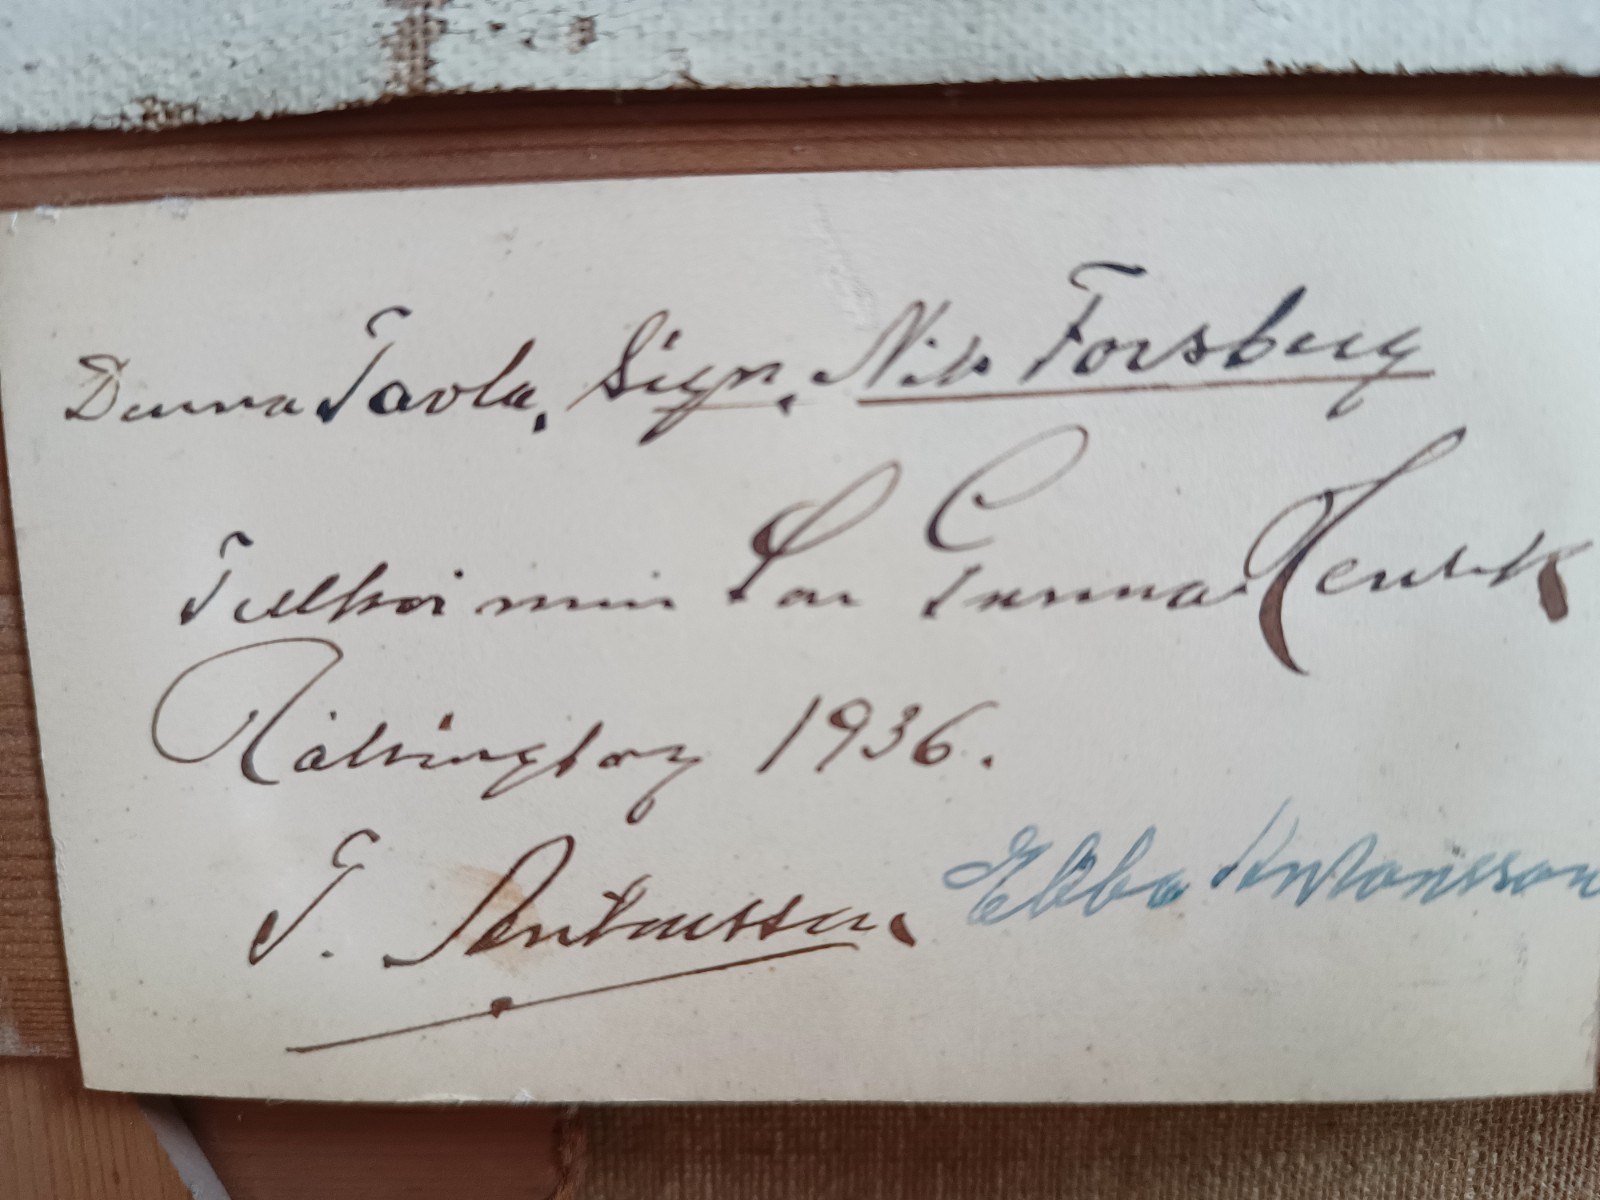 Denna Tavla, Sign, Nils Forsberg
Tillhör min Son Gunnar Henrik
Hälsingborg 1936.
J. Antonsson. Ebba Antonsson